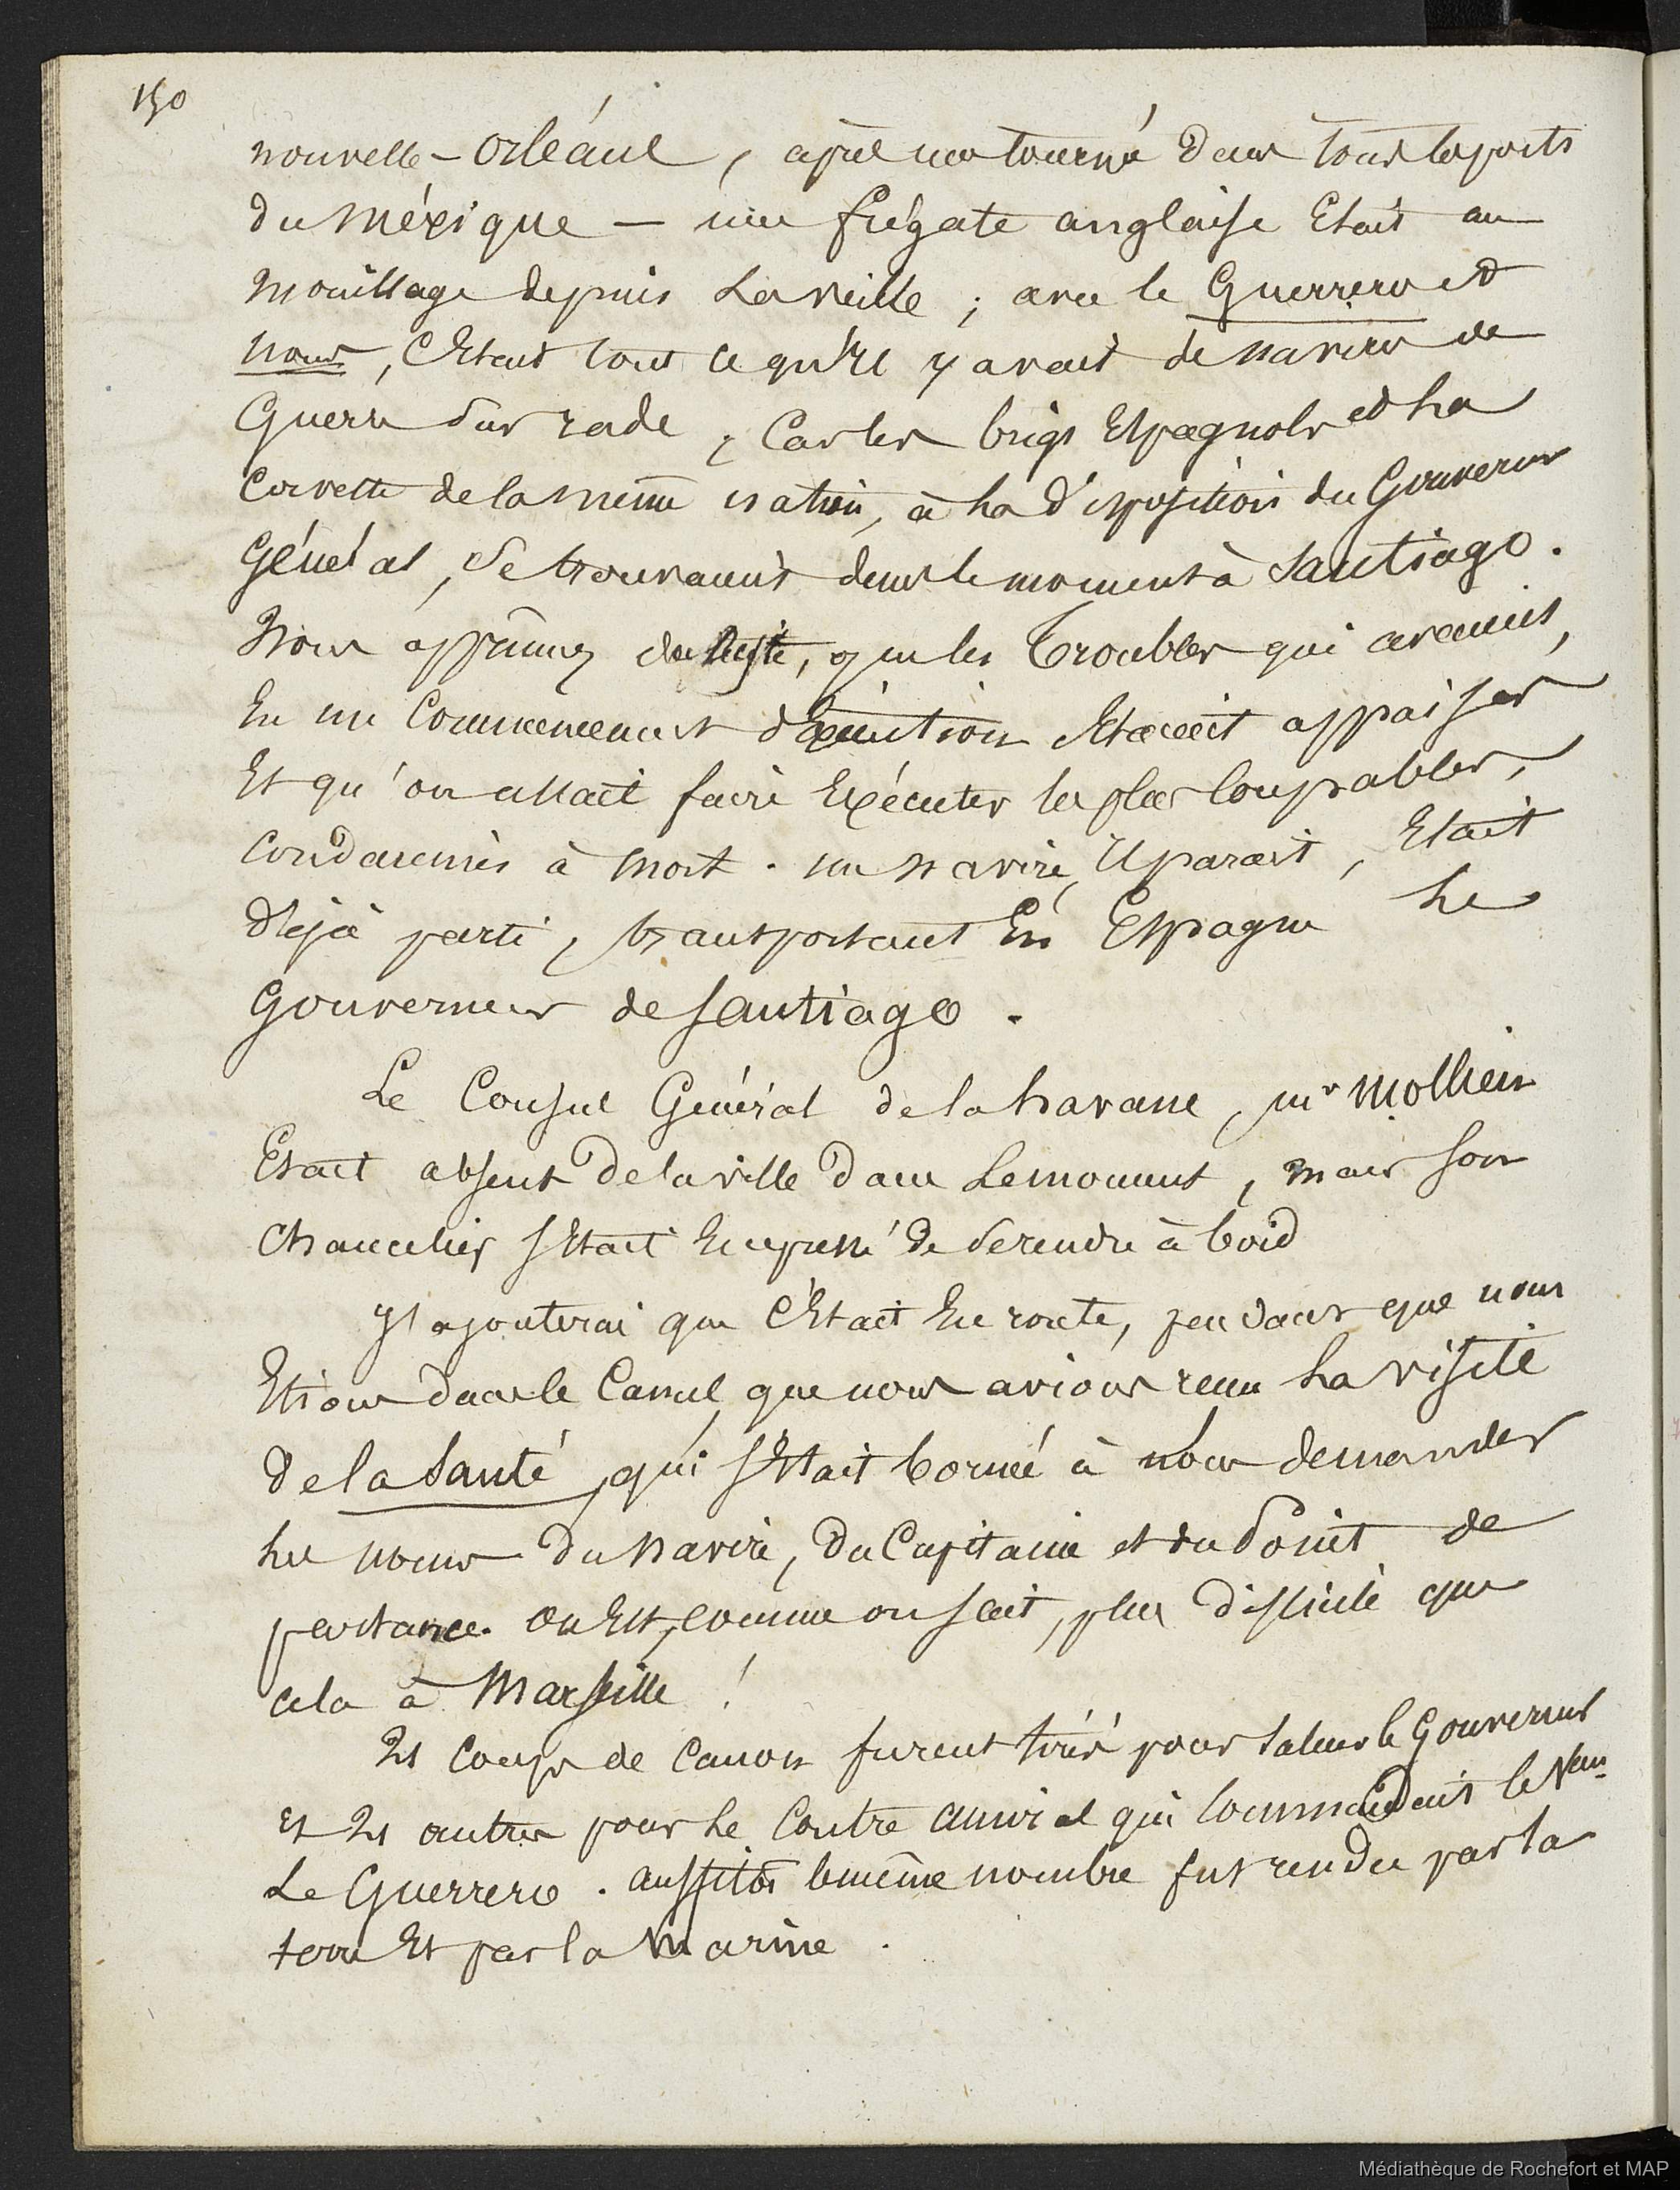 150
nouvelle-Orléans, après une tournée dans tous les ports
du Méxique — une frégate anglaise Etait au
mouillage depuis La veille ; avec le Guerrero et
nous, C'Etait tout ce qu'il y avait de navires de
Guerre sur rade, Car les brigs Espagnols et La
Corvette de la même nation, à La disposition du Gouverneur
Général, se trouvaient dans le moment à Santiago.
Nous apprîmes du reste, que les Troubles qui avaient,
Eu un Commencement d'Exécution Etaient appaisés
Et qu'on allait faire Exécuter les plus Coupables,
Condamnés à mort. un navire, il parait, Etait
déjà parti, transportant En Espagne Le
Gouverneur de Santiago.
Le Consul Général de la havane, mr Mollien
Etait absent de la ville dans Le moment, mais son
Chancelier s'Etait Empressé de se rendre à bord
J'ajouterai que C'Etait En route, pendant que nous
Etions dans le Canal, que nous avions reçu La visite
de la Santé, qui s'Etait bornée à nous demander
Les noms du navire, du Capitaine et du Point de
partance. on Est, comme on sait, plus difficile que
cela à Marseille !
21 Coups de Canon furent tirés pour saluer le Gouverneur
Et 21 autres pour Le Contre amiral qui Commandait le Vau
Le Guerrero. aussitôt le même nombre fut rendu par la
terre Et par la Marine.
Médiathèque de Rochefort et MAP